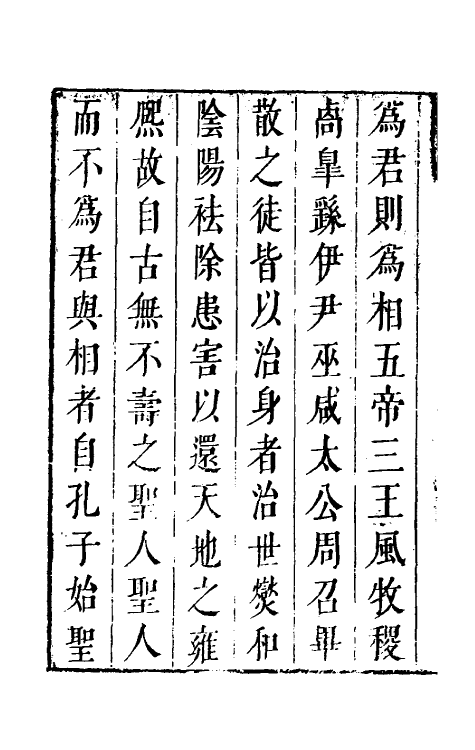 為君則為相五帝三王風牧稷
卨皐繇伊尹巫咸太公周召畢
散之徒皆以治身者治世爕和
陰陽祛除患害以還天地之雍
熈故自古無不壽之聖人聖人
而不為君與相者自孔子始聖